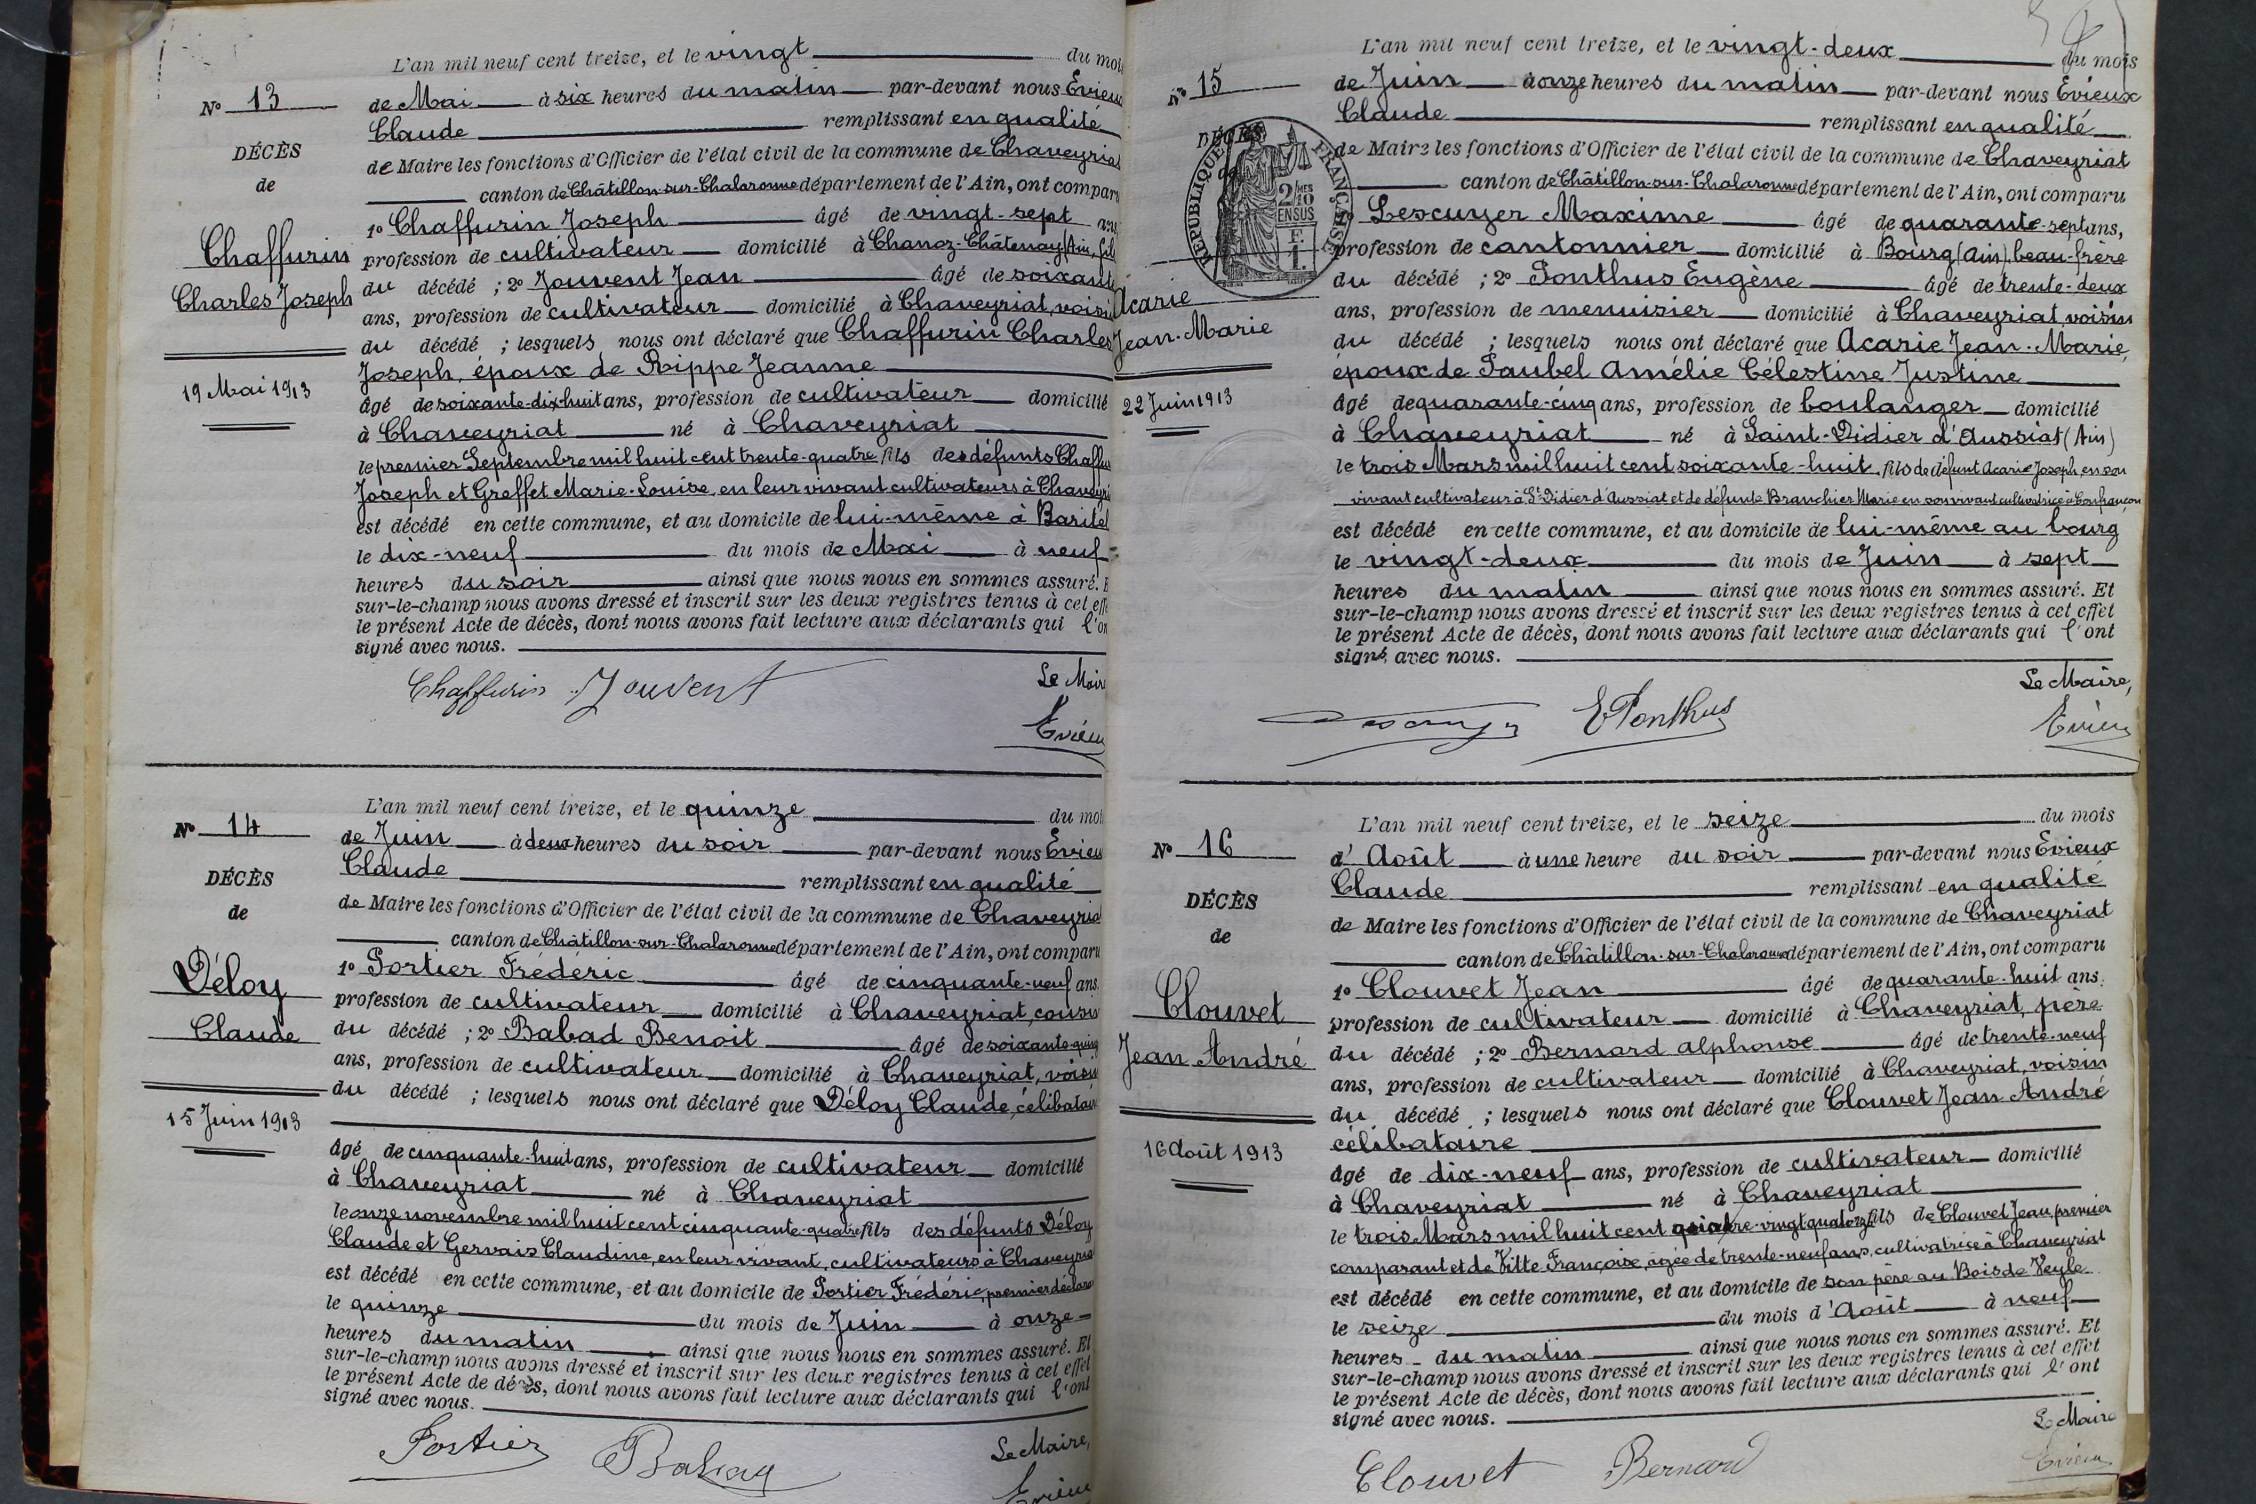 N° 13
DÉCÈS
de
Chaffurin
Charles Joseph
19 Mai 1913
L'an mil neuf cent treize, et le vingt du moi
de Mai à six heures du matin par-devant nous Evieux
Claude remplissant en qualité
de Maire les fonctions d'Officier de l'état civil de la commune de Chaveyriat
canton de Châtillon-sur-Chalaronne département de l'Ain, ont comparu
1° Chaffurin Joseph âgé de vingt-sept ans
profession de cultivateur domicilié à Chanoz-Châtenay (Ain, fils
du décédé ; 2° Jouvent Jean âgé de soixante
ans, profession de cultivateur domicilié à Chaveyriat, voisin
du décédé ; lesquels nous ont déclaré que Chaffurin Charles
Joseph, époux de Rippe Jeanne
âgé de soixante-dix-huit ans, profession de cultivateur domicilié
à Chaveyriat né à Chaveyriat
le premier Septembre mil huit cent trente-quatre fils des défunts Chaffur
Joseph et Greffet Marie-Louise, en leur vivant cultivateurs à Chaveyri
est décédé en cette commune, et au domicile de lui-même à
le dix-neuf du mois de Mai à neuf
heures du soir ainsi que nous nous en sommes assuré. E
sur-le-champ nous avons dressé et inscrit sur les deux registres tenus à cet effe
le présent Acte de décès, dont nous avons fait lecture aux déclarants qui l'on
signé avec nous.
Le Maire
Chaffurin Jouvent
Evieux
N° 14
DÉCÈS
de
Déloy
Claude
15 Juin 1913
L'an mil neuf cent treize, et le quinze du moi
de Juin à deux heures du soir par-devant nous Evieu
Claude remplissant en qualité
de Maire les fonctions d'Officier de l'état civil de la commune de Chaveyria
canton de Châtillon-sur-Chalaronne département de l'Ain, ont comparu
1° Portier Frédéric âgé de cinquante-neuf ans
profession de cultivateur domicilié à Chaveyriat, cousin
du décédé ; 2° Babad Benoit âgé de soixante-quinz
ans, profession de cultivateur domicilié à Chaveyriat, voisin
du décédé ; lesquels nous ont déclaré que Déloy Claude, célibatair
âgé de cinquante-huit ans, profession de cultivateur domicilié
à Chaveyriat né à Chaveyriat
le onze novembre mil huit cent cinquante-quatre fils des défunts Déloy
Claude et Gervais Claudine, en leur vivant, cultivateurs à Chaveyria
est décédé en cette commune, et au domicile de Portier Frédéric, premier déclara
le quinze du mois de Juin à onze
heures du matin ainsi que nous nous en sommes assuré. Et
sur-le-champ nous avons dressé et inscrit sur les deux registres tenus à cet effet
le présent Acte de décès, dont nous avons fait lecture aux déclarants qui l'ont
signé avec nous.
Le Maire,
Portier Babad
Evieux
N° 15
DÉCÈS
de
RÉPUBLIQUE FRANÇAISE
2/10
EN SUS
Acarie
Jean-Marie
22 Juin 1913
L'an mil neuf cent treize, et le vingt-deux du mois
de Juin à onze heures du matin par-devant nous Evieux
Claude remplissant en qualité
de Maire les fonctions d'Officier de l'état civil de la commune de Chaveyriat
canton de Châtillon-sur-Chalaronne département de l'Ain, ont comparu
Lescuyer Maxime âgé de quarante-sept ans,
profession de cantonnier domicilié à Bourg (Ain), beau-frère
du décédé ; 2° Ponthus Eugène âgé de trente-deux
ans, profession de menuisier domicilié à Chaveyriat, voisin
du décédé ; lesquels nous ont déclaré que Acarie Jean-Marie,
époux de Paubel Amélie Célestine Justine
âgé de quarante-cinq ans, profession de boulanger domicilié
à Chaveyriat né à Saint-Didier d'Aussiat (Ain)
le trois Mars mil huit cent soixante-huit, fils de défunt Acarie Joseph, en son
vivant cultivateur à St Didier d'Aussiat et de défunte Branchier Marie en son vivant cultivatrice à Confrançon
est décédé en cette commune, et au domicile de lui-même au bourg
le vingt-deux du mois de Juin à sept
heures du matin ainsi que nous nous en sommes assuré. Et
sur-le-champ nous avons dressé et inscrit sur les deux registres tenus à cet effet
le présent Acte de décès, dont nous avons fait lecture aux déclarants qui l'ont
signé avec nous.
Le Maire,
Lescuyer E Ponthus
Evieux
N° 16
DÉCÈS
de
Clouvet
Jean André
16 Août 1913
L'an mil neuf cent treize, et le seize du mois
d'Août à une heure du soir par-devant nous Evieux
Claude remplissant en qualité
de Maire les fonctions d'Officier de l'état civil de la commune de Chaveyriat
canton de Châtillon-sur-Chalaronne département de l'Ain, ont comparu
1° Clouvet Jean âgé de quarante-huit ans,
profession de cultivateur domicilié à Chaveyriat, père
du décédé ; 2° Bernard Alphonse âgé de trente-neuf
ans, profession de cultivateur domicilié à Chaveyriat, voisin
du décédé ; lesquels nous ont déclaré que Clouvet Jean André
célibataire
âgé de dix-neuf ans, profession de cultivateur domicilié
à Chaveyriat né à Chaveyriat
le trois Mars mil huit cent quatre-vingt quatorze fils de Clouvet Jean, premier
comparant et de Vitte Françoise, agée de trente-neuf ans, cultivatrice à Chaveyriat
est décédé en cette commune, et au domicile de son père au Bois de Veyle
le seize du mois d'Août à neuf
heures du matin ainsi que nous nous en sommes assuré. Et
sur-le-champ nous avons dressé et inscrit sur les deux registres tenus à cet effet
le présent Acte de décès, dont nous avons fait lecture aux déclarants qui l'ont
signé avec nous.
Le Maire
Clouvet Bernard
Evieux